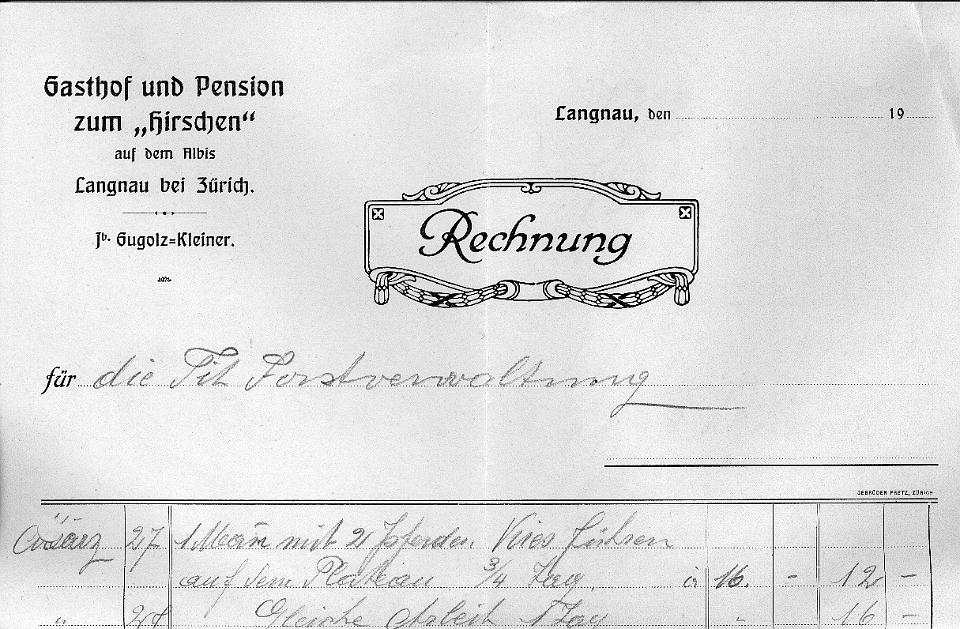 Gasthof und Pension
zum „Hirschen“
auf dem Albis
Langnau bei Zürich.
Jb. Gugolz=Kleiner.
Langnau, den 19
Rechnung
für die Tit Forstverwaltung
GEBRÜDER FRETZ, ZÜRICH
März 27 1 Mann mit 2 Pferden Kies führen
auf dem Plateau 3/4 Tag à 16. - 12 -
" 28 Gleiche Arbeit 1 Tag " 16 -